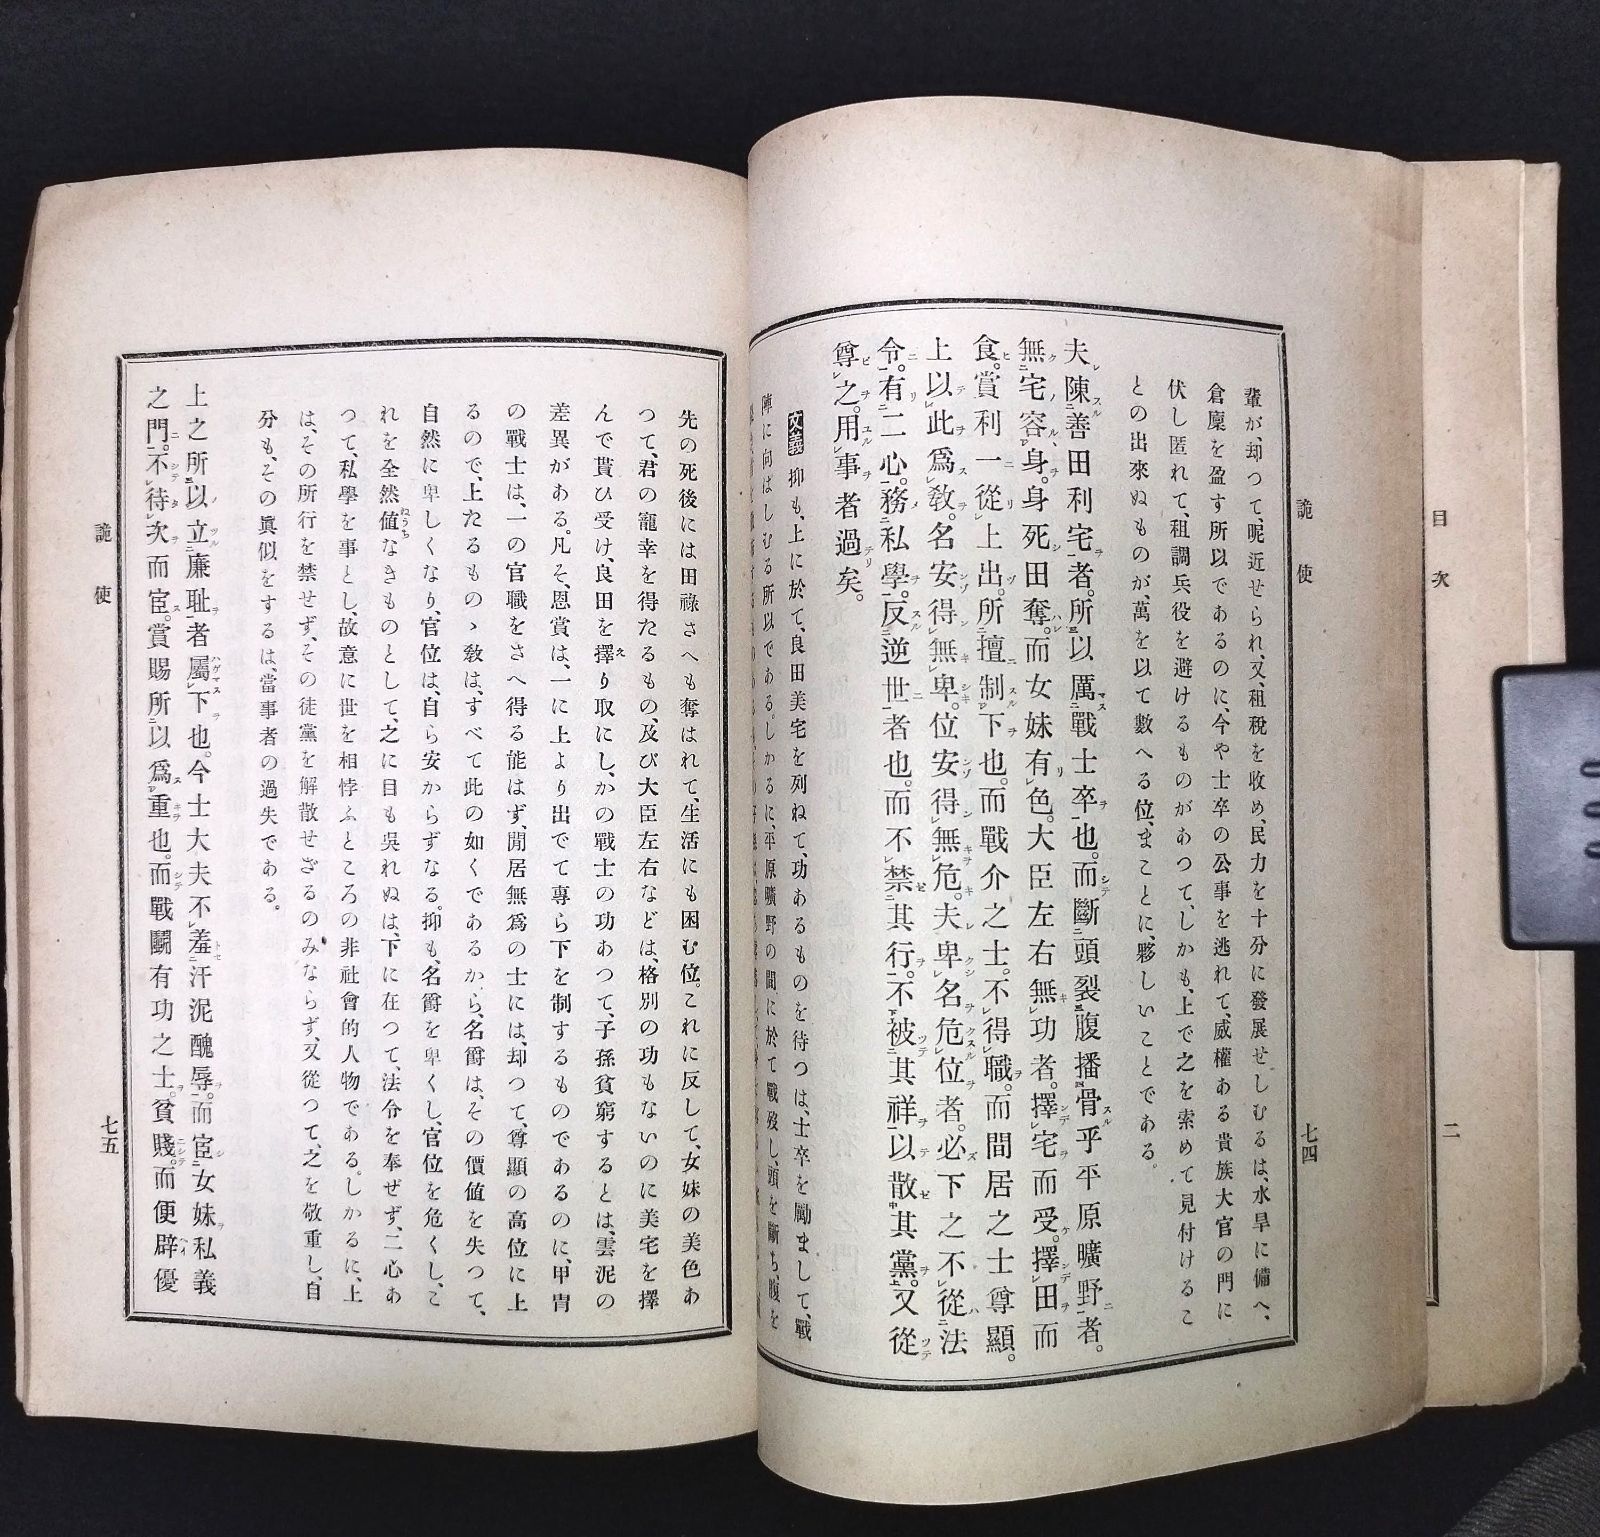 目次
二
詭使
七四
輩が、却つて、昵近せられ、又、租税を收め、民力を十分に發展せしむるは、水旱に備へ、
倉廩を盈す所以であるのに、今や士卒の公事を逃れて、威權ある貴族大官の門に
伏し匿れて、租調兵役を避けるものがあつて、しかも、上で之を索めて見付けるこ
との出來ぬものが、萬を以て數へる位、まことに、夥しいことである。
夫陳善田利宅者。所以厲戰士卒也。而斷頭裂腹播骨乎平原曠野者。
無宅容身。身死田奪。而女妹有色。大臣左右無功者。擇宅而受。擇田而
食。賞利一從上出。所擅制下也。而戰介之士。不得職。而間居之士尊顯。
上以此爲敎。名安得無卑。位安得無危。夫卑名危位者。必下之不從法
令。有二心。務私學。反逆世者也。而不禁其行。不被其祥以散其黨。又從
尊之。用事者過矣。
文義 抑も、上に於て、良田美宅を列ねて、功あるものを待つは、士卒を勵まして、戰
陣に向はしむる所以である。しかるに、平原曠野の間に於て戰歿し、頭を斷ち、腹を
先の死後には田祿さへも奪はれて、生活にも困む位。これに反して、女妹の美色あ
つて、君の寵幸を得たるもの、及び大臣左右などは、格別の功もないのに美宅を擇
んで貰ひ受け、良田を擇り取にし、かの戰士の功あつて、子孫貧窮するとは、雲泥の
差異がある。凡そ、恩賞は、一に上より出でて專ら下を制するものであるのに、甲冑
の戰士は、一の官職をさへ得る能はず、閒居無爲の士には、却つて、尊顯の高位に上
るので、上たるものゝ敎は、すべて此の如くであるから、名爵は、その價値を失つて、
自然に卑しくなり、官位は、自ら安からずなる。抑も、名爵を卑くし、官位を危くし、こ
れを全然値なきものとして、之に目も吳れぬは、下に在つて、法令を奉ぜず、二心あ
つて、私學を事とし、故意に世を相悖ふところの非社會的人物である。しかるに、上
は、その所行を禁せず、その徒黨を解散せざるのみならず、又從つて、之を敬重し、自
分も、その眞似をするは、當事者の過失である。
上之所以立廉耻者屬下也。今士大夫不羞汙泥醜辱。而宦女妹私義
之門。不待次而宦。賞賜所以爲重也。而戰鬭有功之士。貧賤。而便辟優
詭使
七五